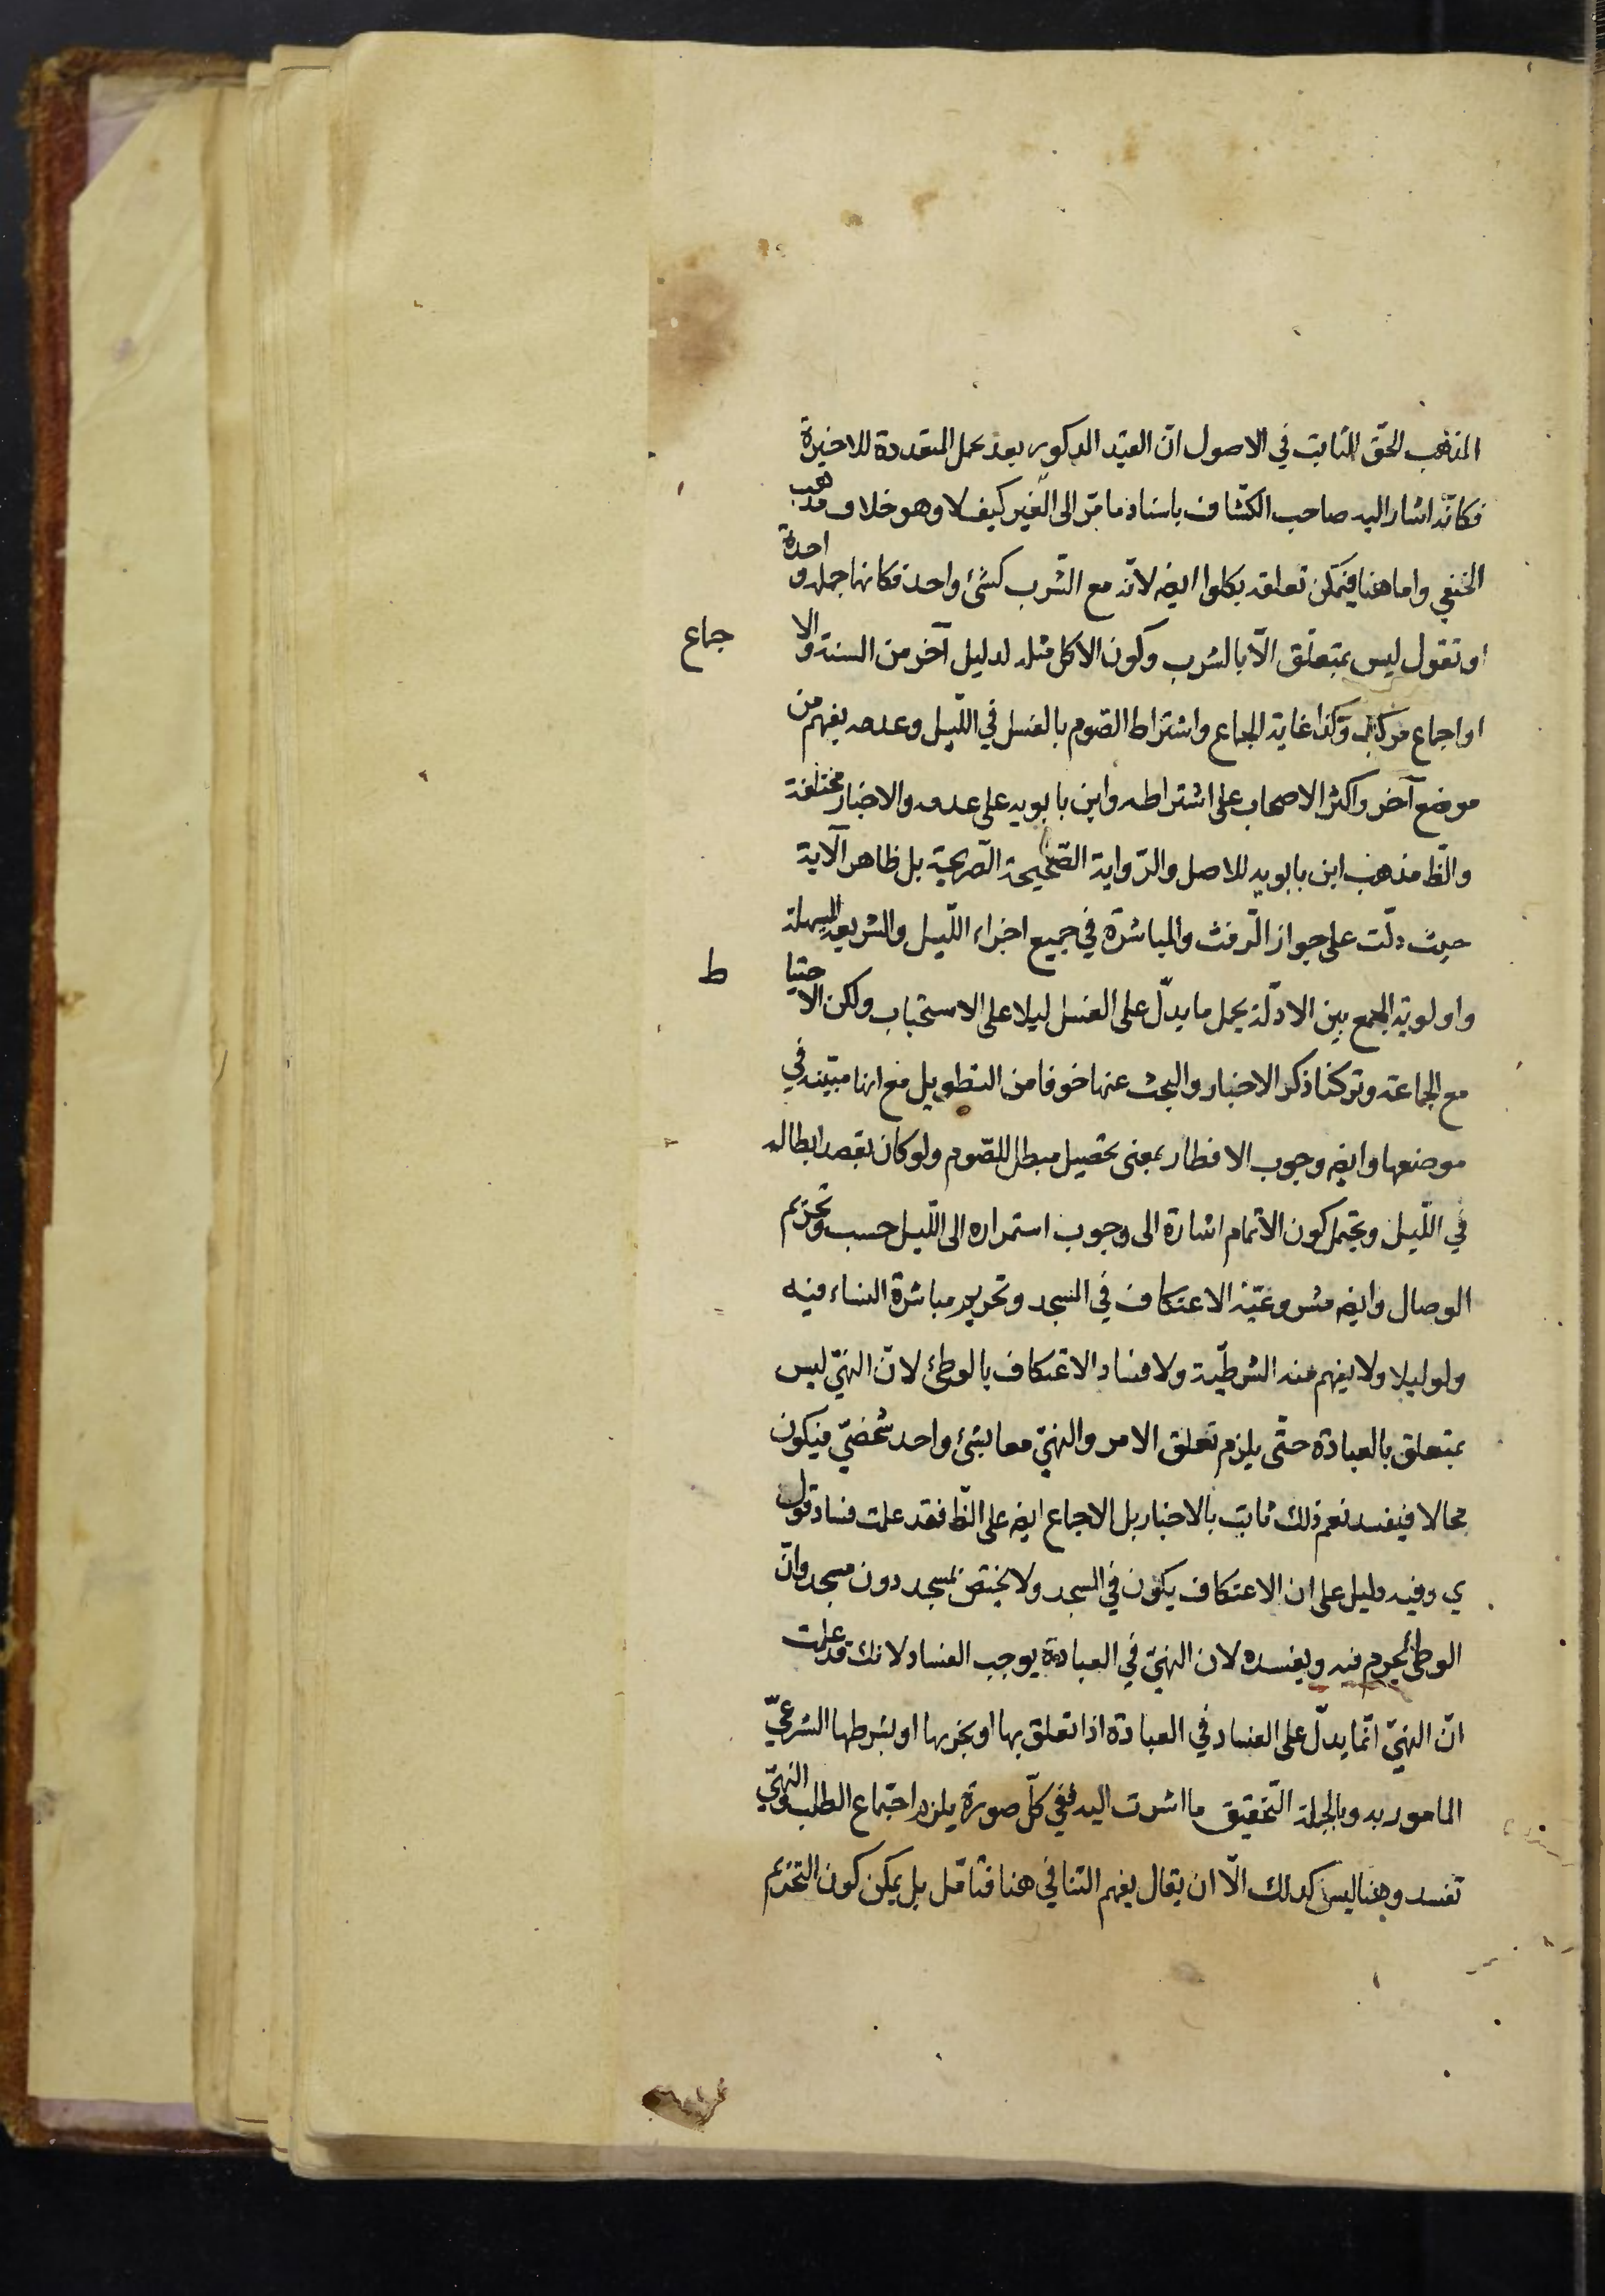 المذهب الحقّ الثابت في الاصول انّ القيد المذكور بعد جمل المتعددة للاخيرة
فكانّه اشار اليه صاحب الكشّاف باسناد ما مرّ الى الغير كيف لا وهو خلاف مذهب
الحنفي واما هنا فيمكن تعلقه بكلوا ايضه لانّه مع الشّرب كشئ واحد فكانها جملة واحدة
او نقول ليس بمتعلّق الّا بالشرب وكون الاكل مثله لدليل آخر من السنة والاجماع
او اجماع مركب وكذا غاية الجماع واشتراط الصّوم بالغسل في اللّيل وعدمه يفهم من
موضع آخر واكثر الاصحاب على اشتراطه وابن بابويه على عدمه والاخبار مختلفة
والظّ مذهب ابن بابويه للاصل والرّواية الصّحيحة الصّريحة بل ظاهر الآية
حيث دلّت على جواز الرّفث والمباشرة في جميع اجزاء اللّيل والشريعة السهلة
واولوية الجمع بين الادلّة بحمل ما يدلّ على الغسل ليلا على الاستحباب ولكن الاحتياط
مع الجماعة وتركنا ذكر الاخبار والبحث عنها خوفا من التطويل مع انها مبيّنة في
موضعها وايضه وجوب الافطار بمعنى تحصيل مبطل للصّوم ولو كان بقصد ابطاله
في اللّيل ويحتمل كون الاتمام اشارة الى وجوب استمراره الى اللّيل حسب وتحريم
الوصال وايضه مشروعيّة الاعتكاف في المسجد وتحريم مباشرة النساء فيه
ولو ليلا ولا يفهم منه الشرطيّة ولا فساد الاعتكاف بالوطئ لانّ النهيّ ليس
بمتعلق بالعبادة حتّى يلزم تعلق الامر والنهيّ معا بشئ واحد شخصيّ فيكون
محالا فيفسد نعم ذلك ثابت بالاخبار بل الاجماع ايضه على الظّ فقد علمت فساد قول
ي وفيه دليل على ان الاعتكاف يكون في المسجد ولا يختصّ بمسجد دون مسجد وانّ
الوطئ يحرم فيه ويفسده لان النهيّ في العبادة يوجب الفساد لانك قد علمت
انّ النهيّ انّما يدلّ على الفساد في العبادة اذا تعلق بها او بجزءها او بشرطها الشرعيّ
المامور به وبالجملة التّحقيق ما اشرت اليه ففي كلّ صورة يلزم اجتماع الطلب والنهيّ
تفسد وهنا ليس كذلك الّا ان يقال يفهم التنافي هنا فتامّل بل يمكن كون التحريم